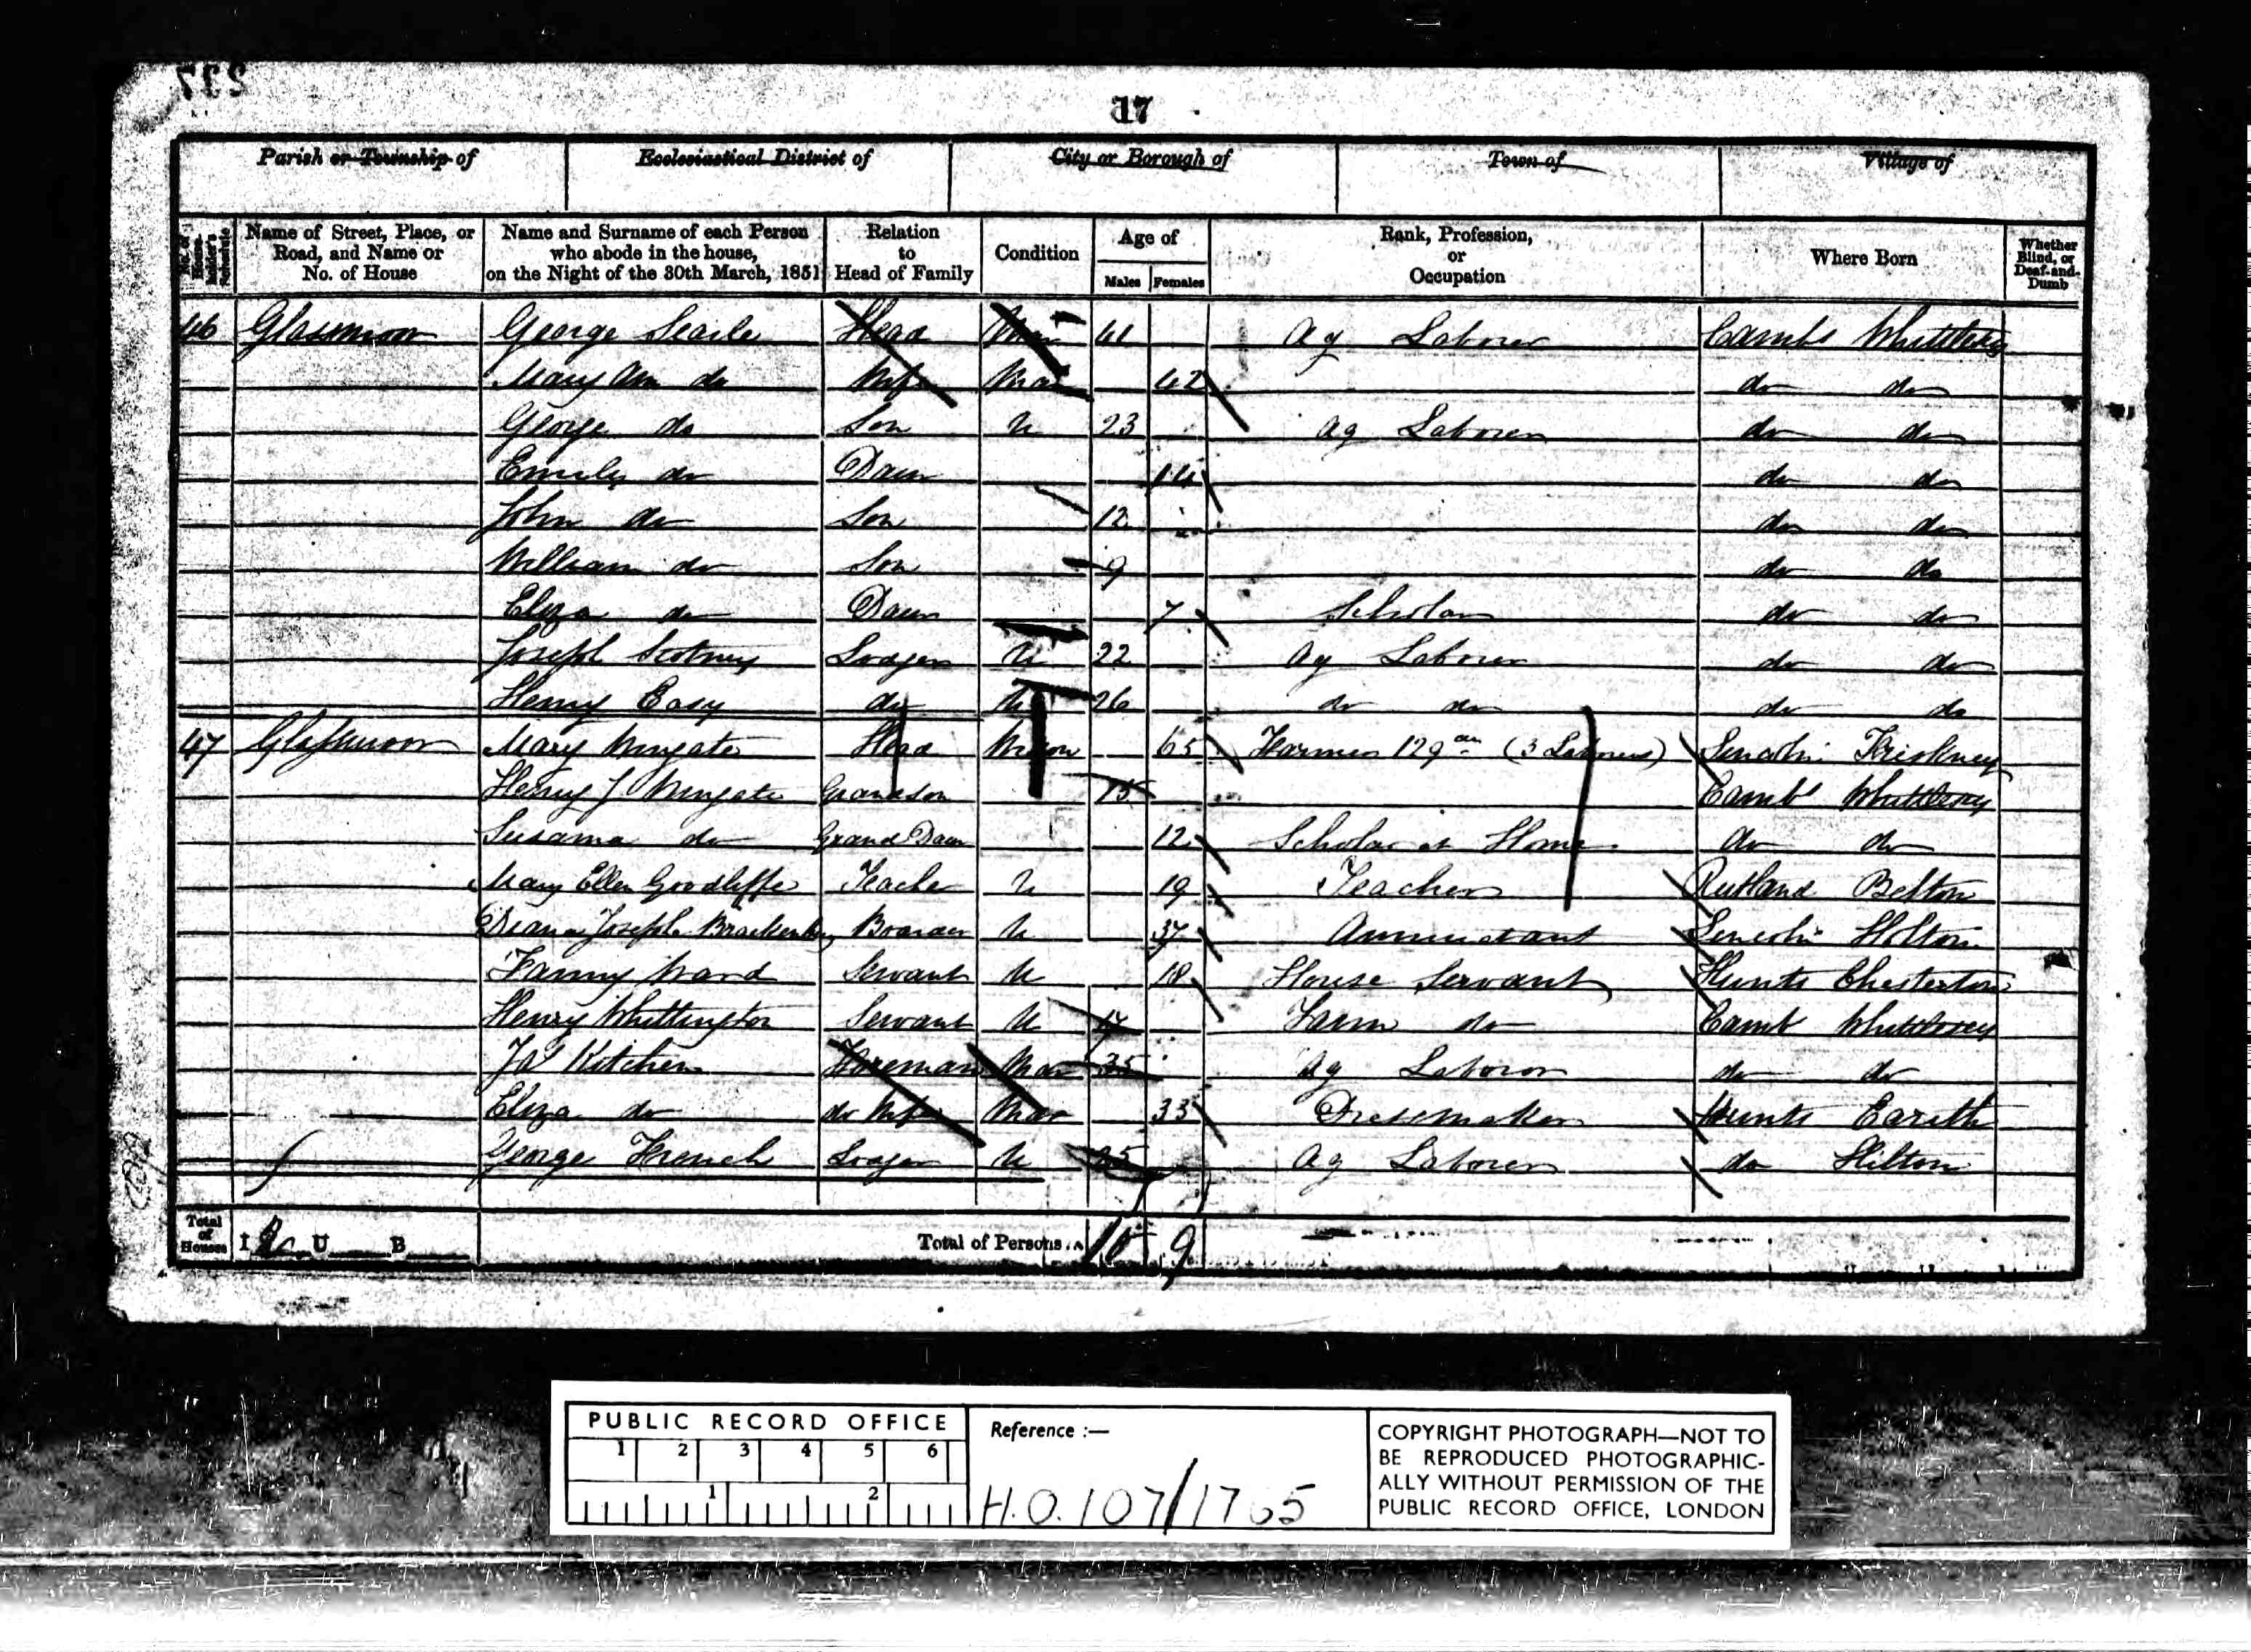 237
17
Parish or Township of Ecclesiastical District of City or Borough of Town of Village of
No. of House-holder's Schedule
Name of Street, Place, or Road, and Name or No. of House
Name and Surname of each Person who abode in the house, on the Night of the 30th March, 1851
Relation to Head of Family
Condition
Age of
Males Females
Rank, Profession, or Occupation
Where Born
Whether Blind, or Deaf-and-Dumb
46 Glassmoor George Searle Head Mar 41 Ag Laborer Cambs Whittlesey
Mary Ann do Wife Mar 42 do do
George do Son U 23 Ag Laborer do do
Emily do Daur 14 do do
John do Son 12 do do
William do Son 9 do do
Eliza do Daur 7 Scholar do do
Joseph Scotney Lodger U 22 Ag Laborer do do
Henry Easy do U 26 do do do do
47 Glassmoor Mary Wingate Head Widow 65 Farmer 129 ac (3 Laborers) Lincoln Friskney
Henry J Wingate Grandson 15 Camb Whittlesey
Susanna do Grand Daur 12 Scholar at Home do do
Mary Ellen Goodliffe Teacher U 19 Teacher Rutland Belton
Diana Joseph Brackenbury Boarder U 37 Annuitant Lincoln Holton
Fanny Ward Servant U 18 House Servant Hunts Chesterton
Henry Whittington Servant U 17 Farm do Camb Whittlesey
Jas Kitchen Foreman Mar 35 Ag Laboror do do
Eliza do do Wife Mar 33 Dressmaker Hunts Earith
George French Lodger U 25 Ag Laborer do Hilton
Total of Houses I 2 U B Total of Persons 10 9
PUBLIC RECORD OFFICE
1 2 3 4 5 6
1 2
Reference :—
H.O. 107/1765
COPYRIGHT PHOTOGRAPH—NOT TO
BE REPRODUCED PHOTOGRAPHIC-
ALLY WITHOUT PERMISSION OF THE
PUBLIC RECORD OFFICE, LONDON